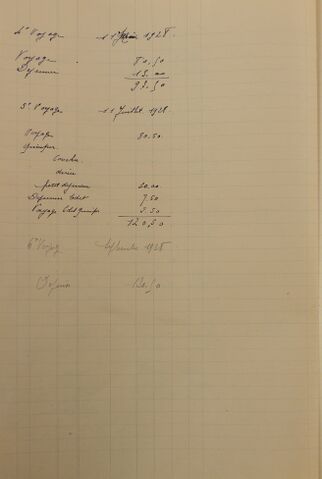 4e Voyage 11 Juin 1928
Voyage 80.50
Dejeuner 13.00
93.50
5e Voyage 11 Juillet 1928
Voyage 80.50
Quimper
Couche
diner
petit dejeuner 30.00
Dejeuner 7.50
Voyage Quimper 2.50
120.50
6e Voyage Septembre 1928